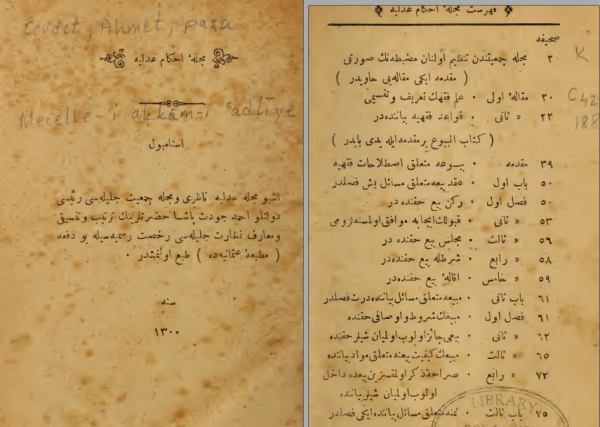 Cevdet, Ahmet, paşa
مجلهٔ احكام عدليه
Mecelle-i ahkâm-i ʿadlīye
استانبول
اشبو مجله عدليه ناظری ومجله جمعيت جليله‌سی رئيسی
دولتلو احمد جودت پاشا حضرتلرينك ترتيب وتنسيق
ومعارف نظارت جليله‌سی رخصت رسميه‌سيله بو دفعه
( مطبعهٔ عثمانيه‌ده ) طبع اولنمشدر ٠
سنه
١٣٠٠
فهرست مجلهٔ احكام عدليه
صحيفه
٢ مجله جمعيتندن تنظيم اولنان مضبطه‌نك صورتی
( مقدمه ايكی مقاله‌يی حاويدر )
٢٠ مقالهٔ اولی ٠ علم فقهك تعريف وتقسيمی
٢٢ « ثانی ٠ قواعد فقهيه بياننده‌در
( كتاب البيوع بر مقدمه ايله يدی بابدر )
٣٩ مقدمه ٠ بيوعه متعلق اصطلاحات فقهيه
٥٠ باب اول ٠ عقد بيعه متعلق مسائل بش فصلدر
٥٠ فصل اول ٠ ركن بيع حقنده‌در
٥٣ « ثانی ٠ قبولك ايجابه موافق اولمسنه لزومی
٥٦ « ثالث ٠ مجلس بيع حقنده در
٥٨ « رابع ٠ شرطله بيع حقنده‌در
٥٩ « خامس ٠ اقالهٔ بيع حقنده‌در
٦١ باب ثانی ٠ مبيعه متعلق مسائل بياننده درت فصلدر
٦١ فصل اول ٠ مبيعك شروط و اوصافی حقنده
٦٢ « ثانی ٠ بيعی جائز اولوب اولميان شيلر حقنده
٦٥ « ثالث ٠ مبيعك كيفيت بيعنه متعلق مواد بياننده
٧٢ « رابع ٠ صراحة ذكر اولنمقسزين بيعده داخل
اولوب اولميان شيلر بياننده
٧٥ باب ثالث ٠ ثمنه متعلق مسائل بياننده ايكی فصلدر
K
C42
188
LIBRARY